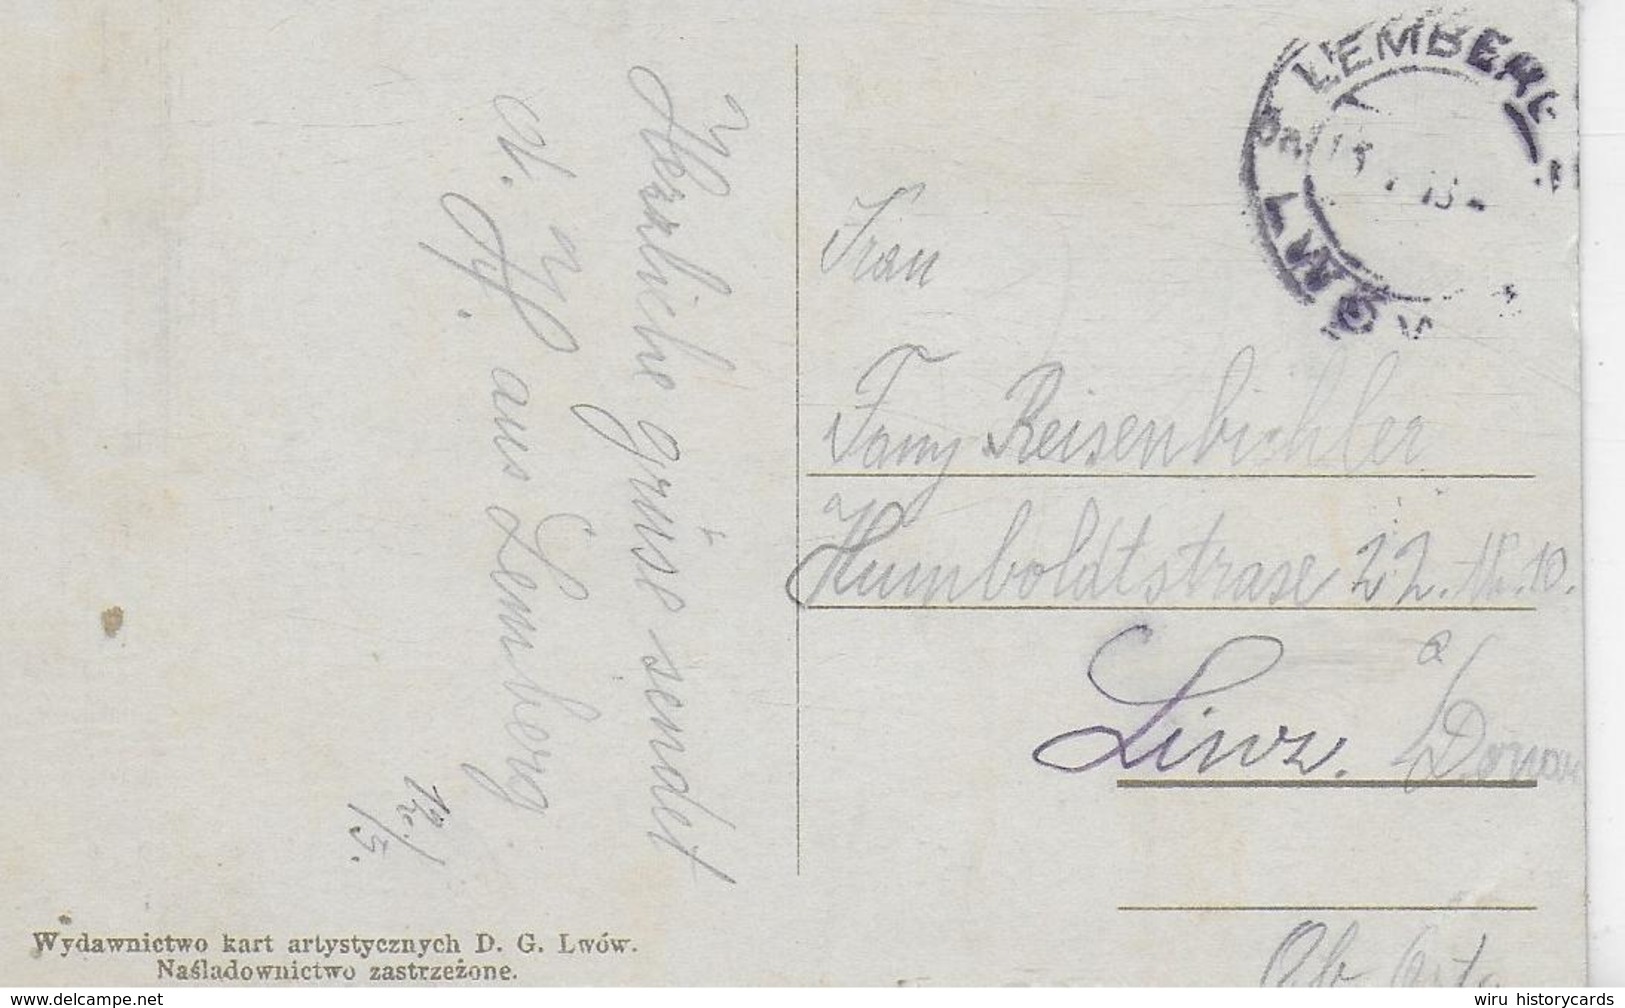 Herzliche grüse sendet
aus Lemberg
12./
/5.
LEMBERG
Frau
Fany Reisenbichler
Humboldtstrase 22.
a/
Linz. Donau
Wydawnictwo kart artystycznych D. G. Lwów.
Naśladownictwo zastrzeżone.
www.delcampe.net
wiru_historycards